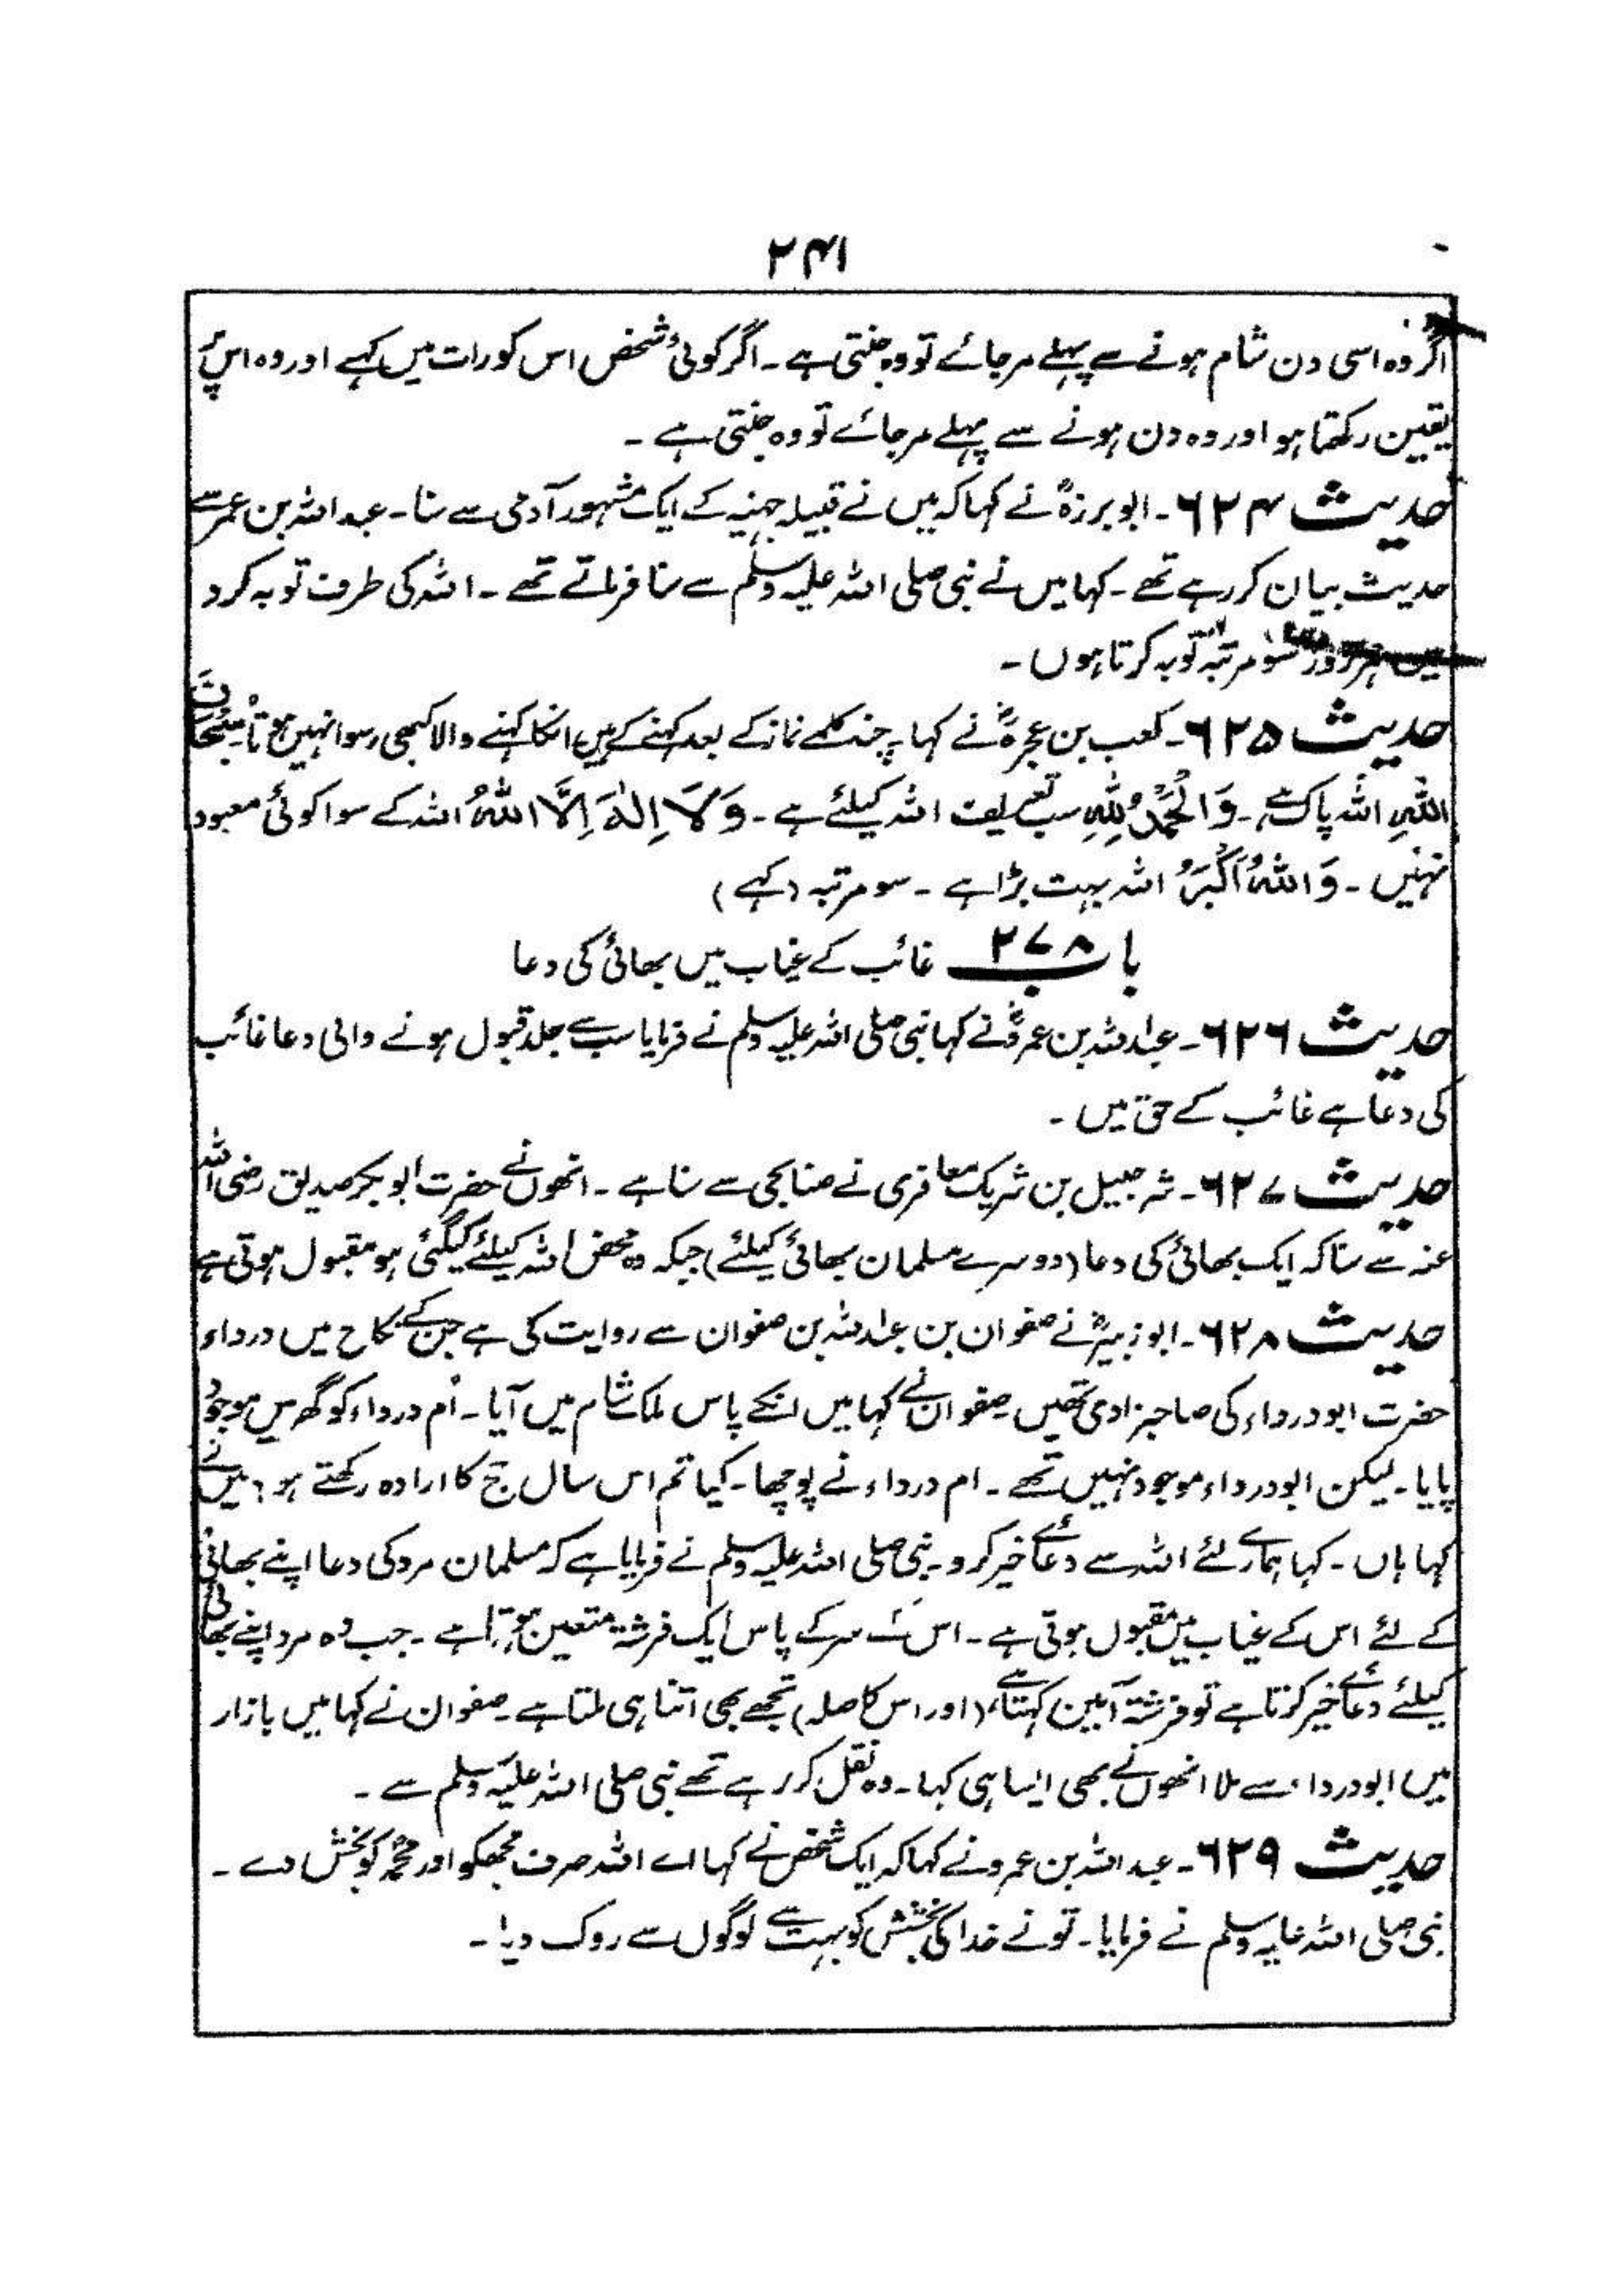 ۲۴۱
اگر وہ اسی دن شام ہونے سے پہلے مرجائے تو وہ جنتی ہے ۔ اگر کوئی شخص اس کو رات میں کہے اور وہ اس پر
یقین رکھتا ہو اور وہ دن ہونے سے پہلے مرجائے تو وہ جنتی ہے ۔
حدیث ۶۲۴ ۔ ابو برزہؓ نے کہا کہ میں نے قبیلہ جہنیہ کے ایک مشہور آدمی سے سنا ۔ عبداللہ بن عمر سے
حدیث بیان کر رہے تھے ۔ کہا میں نے نبی صلی اللہ علیہ وسلم سے سنا فرماتے تھے ۔ اللہ کی طرف توبہ کرو
میں ہر روز سو مرتبہ توبہ کرتا ہوں ۔
حدیث ۶۲۵ ۔ کعب بن عجرہؓ نے کہا چند کلمے نماز کے بعد کہنے کے ہیں انکا کہنے والا کبھی رسوا نہیں ہوتا سُبْحَانَ
اللہِ اللہ پاک ہے ۔ وَالْحَمْدُ لِلّٰہِ سب تعریف اللہ کیلئے ہے ۔ وَلَا اِلٰہَ اِلَّا اللہُ اللہ کے سوا کوئی معبود
نہیں ۔ وَاللہُ اَکْبَرُ اللہ بہت بڑا ہے ۔ سو مرتبہ (کہے)
باب ۲۷۸ غائب کے غیاب میں بھائی کی دعا
حدیث ۶۲۶ ۔ عبداللہ بن عمروؓ نے کہا نبی صلی اللہ علیہ وسلم نے فرمایا سب سے جلد قبول ہونے والی دعا غائب
کی دعا ہے غائب کے حق میں ۔
حدیث ۶۲۷ ۔ شرحبیل بن شریک معافری نے صنابحی سے سنا ہے ۔ انھوں نے حضرت ابوبکر صدیق رضی اللہ
عنہ سے سنا کہ ایک بھائی کی دعا (دوسرے مسلمان بھائی کیلئے) جبکہ وہ محض اللہ کیلئے کی گئی ہو مقبول ہوتی ہے
حدیث ۶۲۸ ۔ ابو زبیرؓ نے صفوان بن عبداللہ بن صفوان سے روایت کی ہے جن کے نکاح میں درداء
حضرت ابودرداء کی صاحبزادی تھیں ۔ صفوان نے کہا میں انکے پاس ملک شام میں آیا ۔ اُم درداء کو گھر میں موجود
پایا ۔ لیکن ابودرداء موجود نہیں تھے ۔ ام درداء نے پوچھا ۔ کیا تم اس سال حج کا ارادہ رکھتے ہو ؟ میں نے
کہا ہاں ۔ کہا ہمارے لئے اللہ سے دعائے خیر کرو ۔ نبی صلی اللہ علیہ وسلم نے فرمایا ہے کہ مسلمان مرد کی دعا اپنے بھائی
کے لئے اس کے غیاب میں مقبول ہوتی ہے ۔ اس کے سر کے پاس ایک فرشتہ متعین ہوتا ہے ۔ جب وہ مرد اپنے بھائی
کیلئے دعائے خیر کرتا ہے تو فرشتہ آمین کہتا ہے (اور اس کا صلہ) تجھے بھی اتنا ہی ملتا ہے ۔ صفوان نے کہا میں بازار
میں ابودرداء سے ملا انھوں نے بھی ایسا ہی کہا ۔ وہ نقل کر رہے تھے نبی صلی اللہ علیہ وسلم سے ۔
حدیث ۶۲۹ ۔ عبداللہ بن عمرو نے کہا کہ ایک شخص نے کہا اے اللہ صرف مجھکو اور محمدؐ کو بخش دے ۔
نبی صلی اللہ علیہ وسلم نے فرمایا ۔ تونے خدا کی بخشش کو بہت سے لوگوں سے روک دیا ۔